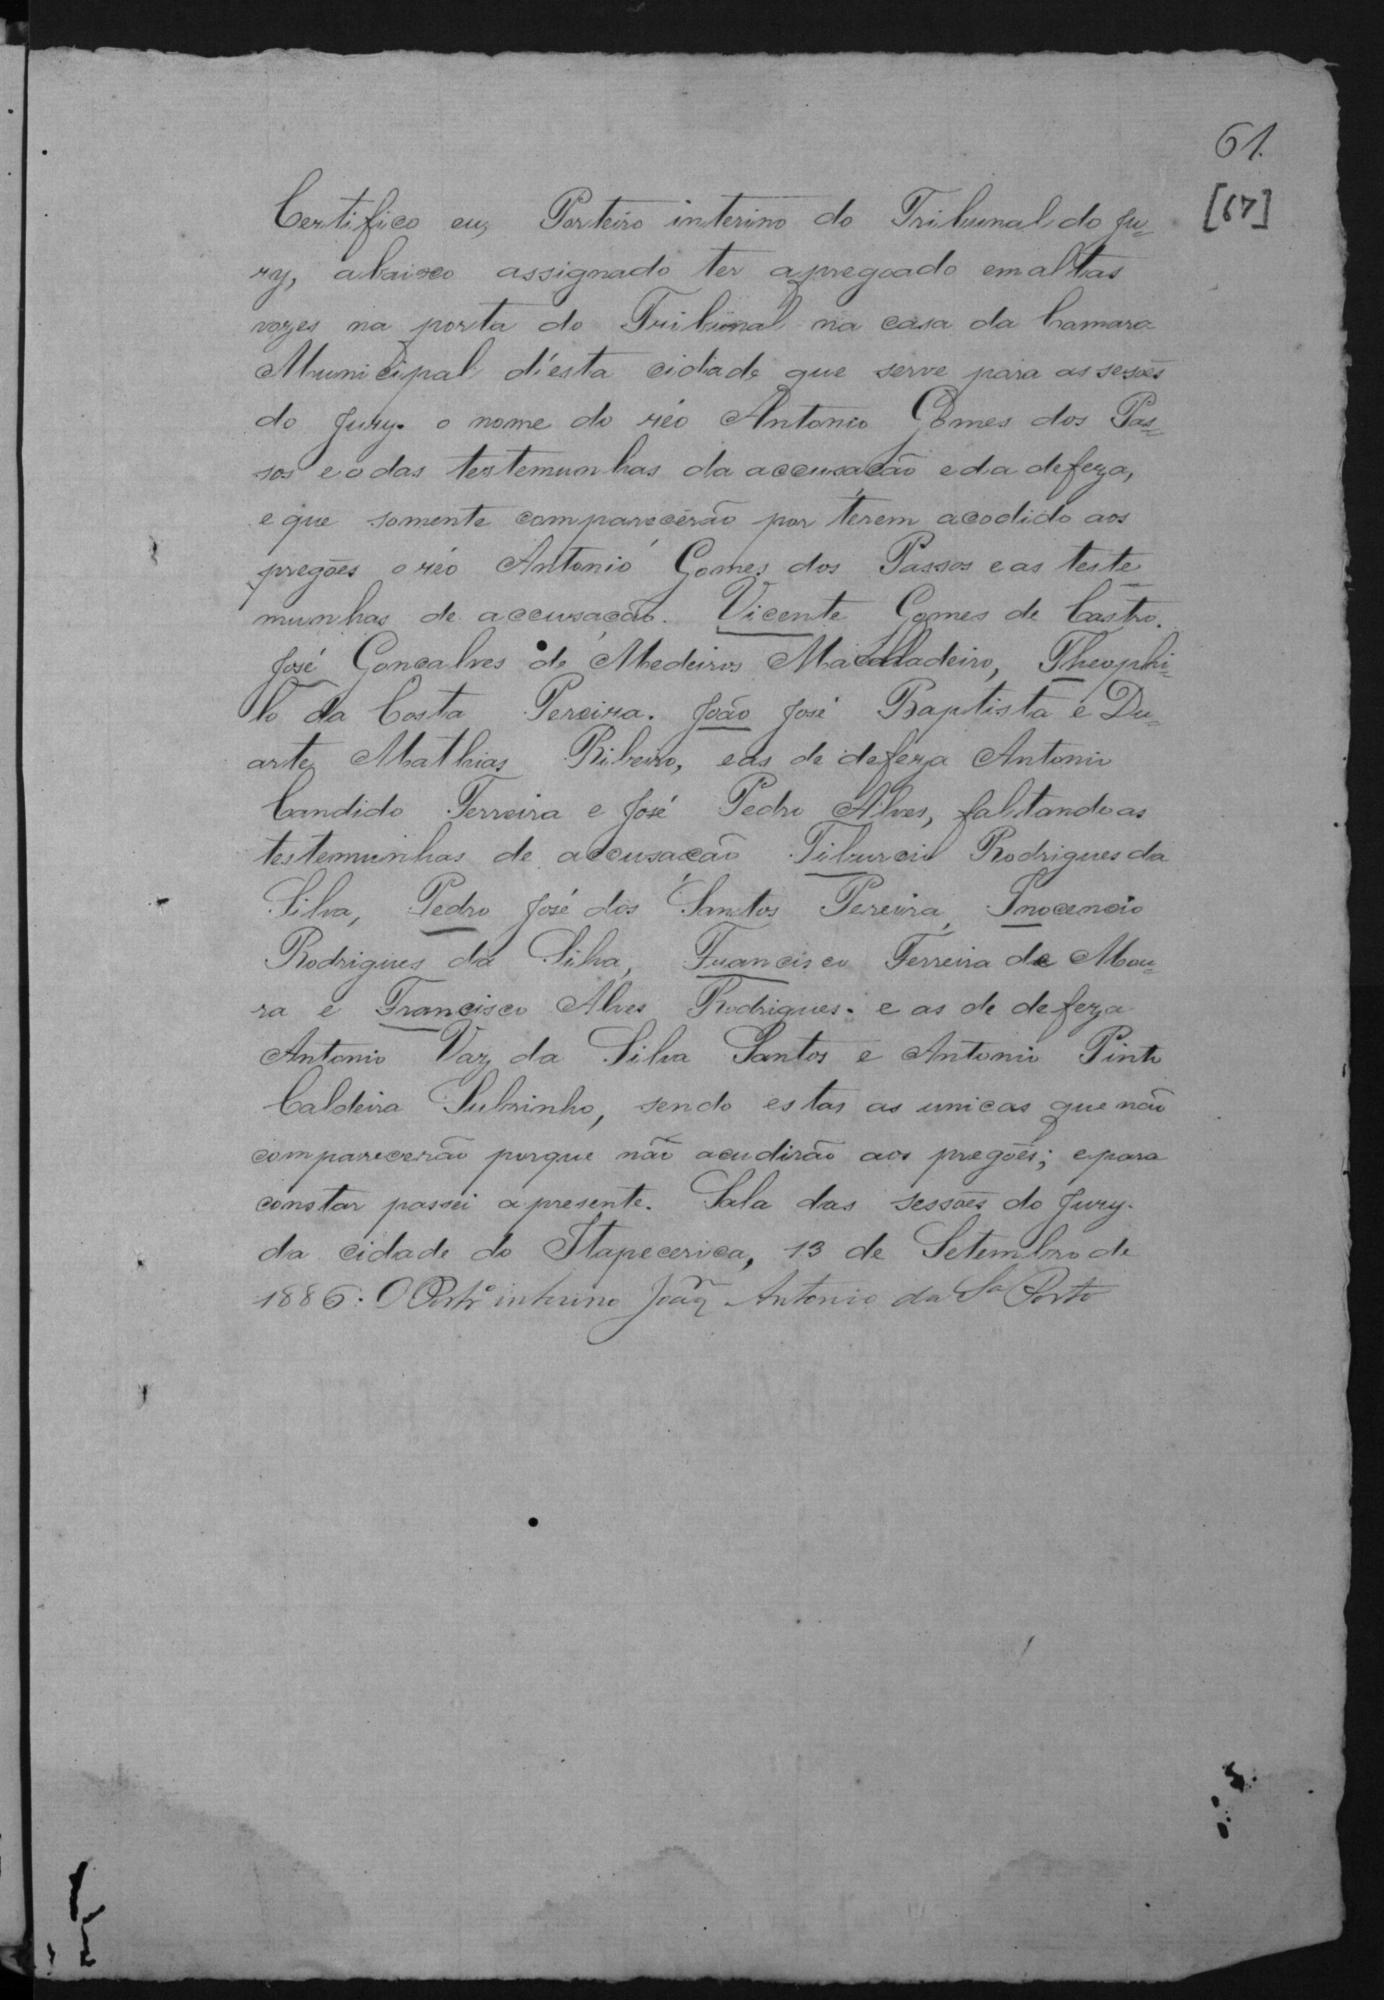 61.
[67]
Certifico eu, Porteiro interino do Tribunal do Ju-
ry, abaixo assignado ter apregoado em altas
vozes na porta do Tribunal na casa da Camara
Municipal d'esta cidade que serve para as sesões
do Jury. o nome do réo Antonio Gomes dos Pas-
sos e o das testemunhas da accusação e da defeza,
e que somente comparecerão por terem acodido aos
pregões o réo Antonio Gomes dos Passos e as teste
munhas de accusação. Vicente Gomes de Castro.
José Gonçalves de Medeiros Theophi-
lo da Costa Pereira. João José Baptista e Du-
arte Mathias Ribeiro, e as de defeza Antonio
Candido Ferreira e José Pedro Alves, faltando as
testemunhas de accusação Tiburcio Rodrigues da
Silva, Pedro José dos Santos Pereira, Inocencio
Rodrigues da Silva, Francisco Ferreira de Mou-
ra e Francisco Alves Rodrigues. e as de defeza
Antonio Vaz da Silva Santos e Antonio Pinto
Caldeira Subrinho, sendo estas as unicas que não
comparecerão porque não acudirão aos pregões; e para
constar passei a presente. Sala das sessões do Jury.
da cidade do Itapecerica, 13 de Setembro de
1886. O Portr.o interino Joaq.m Antonio da S.a Porto